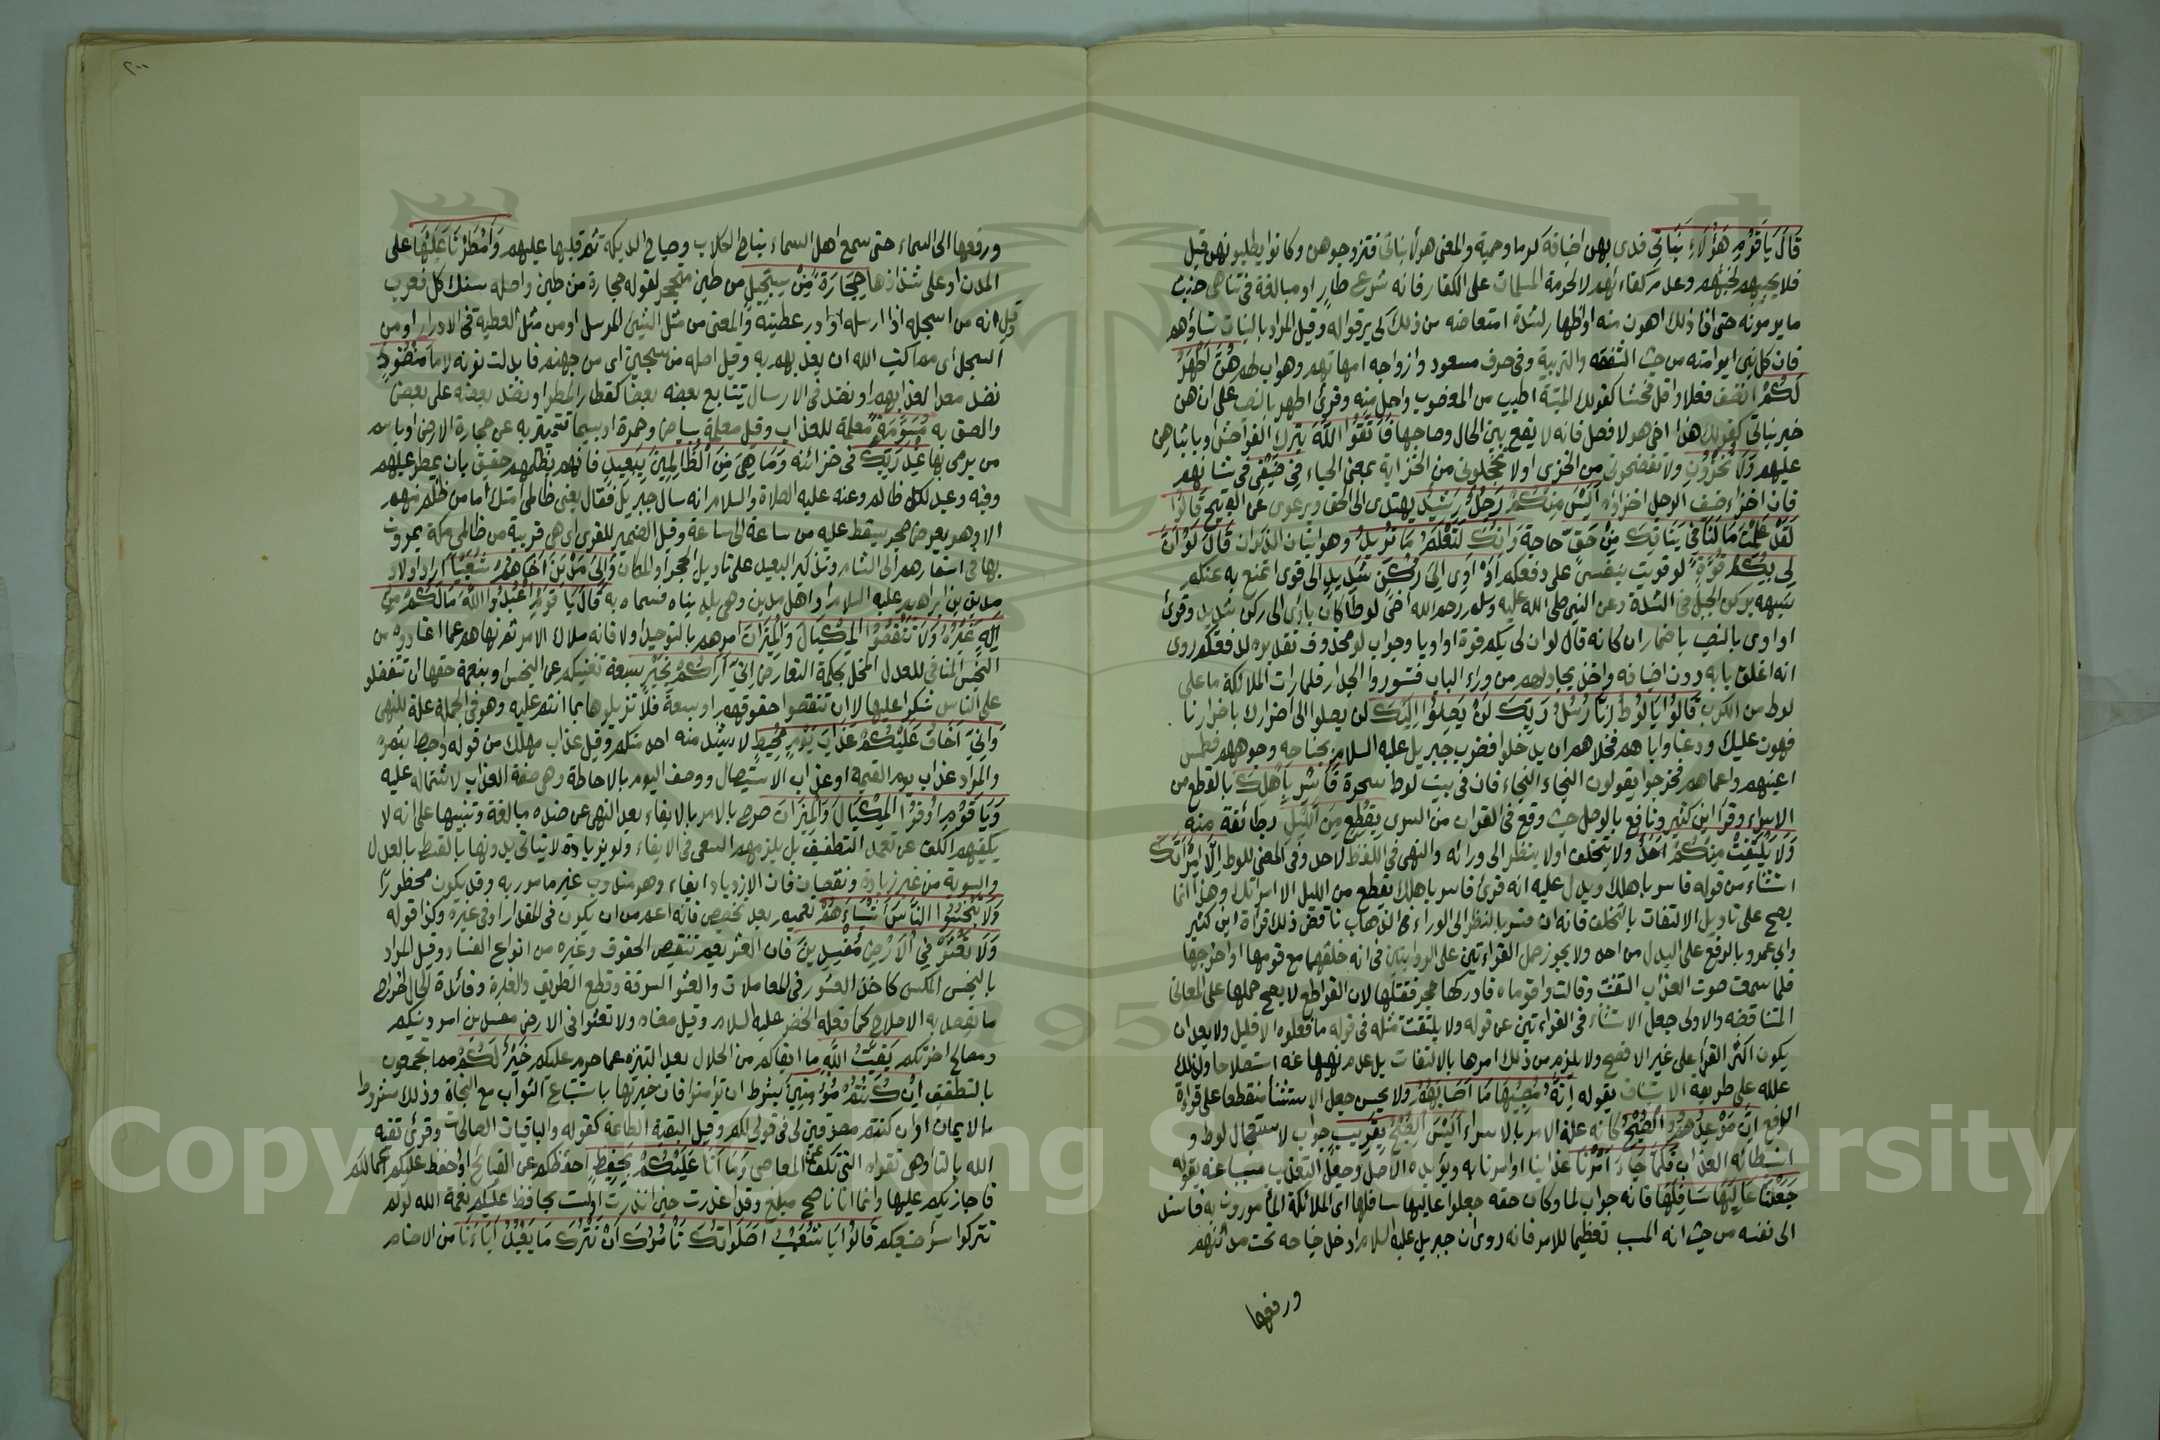 قَالَ يَا قَوْمِ هَؤُلَاءِ بَنَاتِي فدى بهن اضيافه كرما وحمية والمعنى هؤلاء بناتي فتزوجوهن وكانوا يطلبونهن قبل
فلا يجيبهم لخبثهم وعدم كفاءتهم لا لحرمة المسلمات على الكفار فانه شرع طار او مبالغة في تناهي خبث
ما يرومونه حتى ان ذلك اهون منه او اظهار لشدة امتعاضه من ذلك كي يرقوا له وقيل المراد بالبنات نساؤهم
فان كل نبي ابو امته من حيث الشفقة والتربية وفي حرف مسعود وازواجه امهاتهم وهو اب لهم هُنَّ أَطْهَرُ
لَكُمْ انظف فعلا واقل فحشا كقولك الميتة اطيب من المغصوب واحل منه وقرئ اطهر بالنصب على ان هن
خبر بناتي كقولك هذا اخي هو لا فصل فانه لا يقع بين الحال وصاحبها فَاتَّقُوا اللَّهَ بترك الفواحش او بايثارهن
عليهم وَلَا تُخْزُونِ ولا تفضحوني من الخزي او لا تخجلوني من الخزاية بمعنى الحياء فِي ضَيْفِي في شانهم
فان اخزاء ضيف الرجل اخزاؤه أَلَيْسَ مِنْكُمْ رَجُلٌ رَشِيدٌ يهتدي الى الحق ويرعوي عن القبيح قَالُوا
لَقَدْ عَلِمْتَ مَا لَنَا فِي بَنَاتِكَ مِنْ حَقٍّ حاجة وَإِنَّكَ لَتَعْلَمُ مَا نُرِيدُ وهو اتيان الذكران قَالَ لَوْ أَنَّ
لِي بِكُمْ قُوَّةً لو قويت بنفسي على دفعكم أَوْ آوِي إِلَى رُكْنٍ شَدِيدٍ الى قوي اتمنع به عنكم
شبهه بركن الجبل في الشدة وعن النبي صلى الله عليه وسلم رحم الله اخي لوطا كان ياوي الى ركن شديد وقرئ
او اوي بالنصب باضمار ان كانه قال لو ان لي بكم قوة او اويا وجواب لو محذوف تقديره لدفعتكم روي
انه اغلق بابه دون اضيافه واخذ يجادلهم من وراء الباب فتسوروا الجدار فلما رات الملائكة ما على
لوط من الكرب قَالُوا يَا لُوطُ إِنَّا رُسُلُ رَبِّكَ لَنْ يَصِلُوا إِلَيْكَ لن يصلوا الى اضرارك باضرارنا
فهون عليك ودعنا واياهم فخلاهم ان يدخلوا فضرب جبريل عليه السلام بجناحه وجوههم فطمس
اعينهم واعماهم فخرجوا يقولون النجاء النجاء فان في بيت لوط سحرة فَأَسْرِ بِأَهْلِكَ بالقطع من
الاسراء وقرا ابن كثير ونافع بالوصل حيث وقع في القران من السرى بِقِطْعٍ مِنَ اللَّيْلِ بطائفة منه
وَلَا يَلْتَفِتْ مِنْكُمْ أَحَدٌ ولا يتخلف او لا ينظر الى ورائه والنهي في اللفظ لاحد وفي المعنى للوط إِلَّا امْرَأَتَكَ
استثناء من قوله فاسر باهلك ويدل عليه انه قرئ فاسر باهلك بقطع من الليل الا امراتك وهذا انما
يصح على تاويل الالتفات بالتخلف فانه ان فسر بالنظر الى الوراء في الذهاب ناقض ذلك قراة ابن كثير
وابي عمرو بالرفع على البدل من احد ولا يجوز حمل القراءتين على الروايتين في انه خلفها مع قومها او اخرجها
فلما سمعت صوت العذاب التفتت وقالت واقوماه فادركها حجر فقتلها لان القواطع لا يصح حملها على المعاني
المتناقضه والاولى جعل الاستثناء في القراءتين عن قوله ولا يلتفت مثله في قوله ما فعلوه الا قليل ولا يبعد ان
يكون اكثر القرا على غير الافصح ولا يلزم من ذلك امرها بالالتفات بل عدم نهيها عنه استصلاحا ولذلك
علله على طريقه الاستيناف بقوله إِنَّهُ مُصِيبُهَا مَا أَصَابَهُمْ ولا يحسن جعل الاستثنا منقطعا على قراة
الرفع إِنَّ مَوْعِدَهُمُ الصُّبْحُ كانه علة الامر بالاسراء أَلَيْسَ الصُّبْحُ بِقَرِيبٍ جواب لاستعجال لوط و
استبطائه العذاب فَلَمَّا جَاءَ أَمْرُنَا عذابنا او امرنا به ويؤيده الاصل وجعل التعذيب مسببا عنه بقوله
جَعَلْنَا عَالِيَهَا سَافِلَهَا فانه جواب لما وكان حقه جعلوا عاليها سافلها اي الملائكة المامورون به فاسند
الى نفسه من حيث انه المسبب تعظيما للامر فانه روي ان جبريل عليه السلام ادخل جناحه تحت مدائنهم
ورفعها
٢٠٠
ورفعها الى السماء حتى سمع اهل السماء نباح الكلاب وصياح الديكة ثم قلبها عليهم وَأَمْطَرْنَا عَلَيْهَا على
المدن او على شذاذها حِجَارَةً مِنْ سِجِّيلٍ من طين متحجر لقوله حجارة من طين واصله سنك كل فعرب
وقيل انه من اسجله اذا ارسله او ادر عطيته والمعنى من مثل الشيء المرسل او من مثل العطية في الادرار او من
السجل اي مما كتب الله ان يعذبهم به وقيل اصله من سجين اي من جهنم فابدلت نونه لاما مَنْضُودٍ
نضد معدا لعذابهم او نضد في الارسال يتتابع بعضه بعضا كقطار المطر او نضد بعضه على بعض
والصق به مُسَوَّمَةً معلمة للعذاب وقيل معلمة ببياض وحمرة او بسيما تتميز به عن حجارة الارض او باسم
من يرمى بها عِنْدَ رَبِّكَ في خزائنه وَمَا هِيَ مِنَ الظَّالِمِينَ بِبَعِيدٍ فانهم بظلمهم حقيق بان يمطر عليهم
وفيه وعيد لكل ظالم وعنه عليه الصلاة والسلام انه سال جبريل فقال يعني ظالمي امتك ما من ظالم منهم
الا وهو بعرض حجر يسقط عليه من ساعة الى ساعة وقيل الضمير للقرى اي هي قريبة من ظالمي مكة يمرون
بها في اسفارهم الى الشام وتذكير البعيد على تاويل الحجر او المكان وَإِلَى مَدْيَنَ أَخَاهُمْ شُعَيْبًا اراد اولاد
مدين بن ابراهيم عليه السلام او اهل مدين وهي بلد بناه فسماه به قَالَ يَا قَوْمِ اعْبُدُوا اللَّهَ مَا لَكُمْ مِنْ
إِلَهٍ غَيْرُهُ وَلَا تَنْقُصُوا الْمِكْيَالَ وَالْمِيزَانَ امرهم بالتوحيد اولا فانه ملاك الامر ثم نهاهم عما اعتادوه من
البخس المنافي للعدل المخل بحكمة التعاوض إِنِّي أَرَاكُمْ بِخَيْرٍ بسعة تغنيكم عن البخس او بنعمة حقها ان تتفضلوا
على الناس شكرا عليها لا ان تنقصوا حقوقهم او بسعة فلا تزيلوها بما انتم عليه وهو في الجملة علة للنهي
وَإِنِّي أَخَافُ عَلَيْكُمْ عَذَابَ يَوْمٍ مُحِيطٍ لا يشذ منه احد منكم وقيل عذاب مهلك من قوله واحيط بثمره
والمراد عذاب يوم القيمة او عذاب الاستيصال ووصف اليوم بالاحاطة وهي صفة العذاب لاشتماله عليه
وَيَا قَوْمِ أَوْفُوا الْمِكْيَالَ وَالْمِيزَانَ صرح بالامر بالايفاء بعد النهي عن ضده مبالغة وتنبيها على انه لا
يكفيهم الكف عن تعمد التطفيف بل يلزمهم السعي في الايفاء ولو بزيادة لا يتاتى بدونها بالقسط بالعدل
والسوية من غير زيادة ونقصان فان الازدياد ايفاء وهو مندوب غير مامور به وقد يكون محظورا
وَلَا تَبْخَسُوا النَّاسَ أَشْيَاءَهُمْ تعميم بعد تخصيص فانه اعم من ان يكون في المقدار او في غيره وكذا قوله
وَلَا تَعْثَوْا فِي الْأَرْضِ مُفْسِدِينَ فان العثو يعم تنقيص الحقوق وغيره من انواع الفساد وقيل المراد
بالبخس المكس كاخذ العشور في المعاملات والعثو السرقة وقطع الطريق والغارة وفائدة الحال اخراج
ما يقصد به الاصلاح كما فعله الخضر عليه السلام وقيل معناه ولا تعثوا في الارض مفسدين امر دينكم
ومصالح اخرتكم بَقِيَّتُ اللَّهِ ما ابقاكم من الحلال بعد التنزه عما حرم عليكم خَيْرٌ لَكُمْ مما تجمعون
بالتطفيف إِنْ كُنْتُمْ مُؤْمِنِينَ بشرط ان تؤمنوا فان خيريتها باستتباع الثواب مع النجاة وذلك مشروط
بالايمان او ان كنتم مصدقين لي في قولي لكم وقيل البقية الطاعة كقوله والباقيات الصالحات وقرئ تقية
الله بالتاء وهي تقواه التي تكف عن المعاصي وَمَا أَنَا عَلَيْكُمْ بِحَفِيظٍ احفظكم عن القبايح او احفظ عليكم اعمالكم
فاجازيكم عليها وانما انا ناصح مبلغ وقد اعذرت حين انذرت او لست بحافظ عليكم نعمة الله لو لم
تتركوا سوء صنيعكم قَالُوا يَا شُعَيْبُ أَصَلَوَاتُكَ تَأْمُرُكَ أَنْ نَتْرُكَ مَا يَعْبُدُ آبَاؤُنَا من الاصنام
Copyright © King Saud University
1957